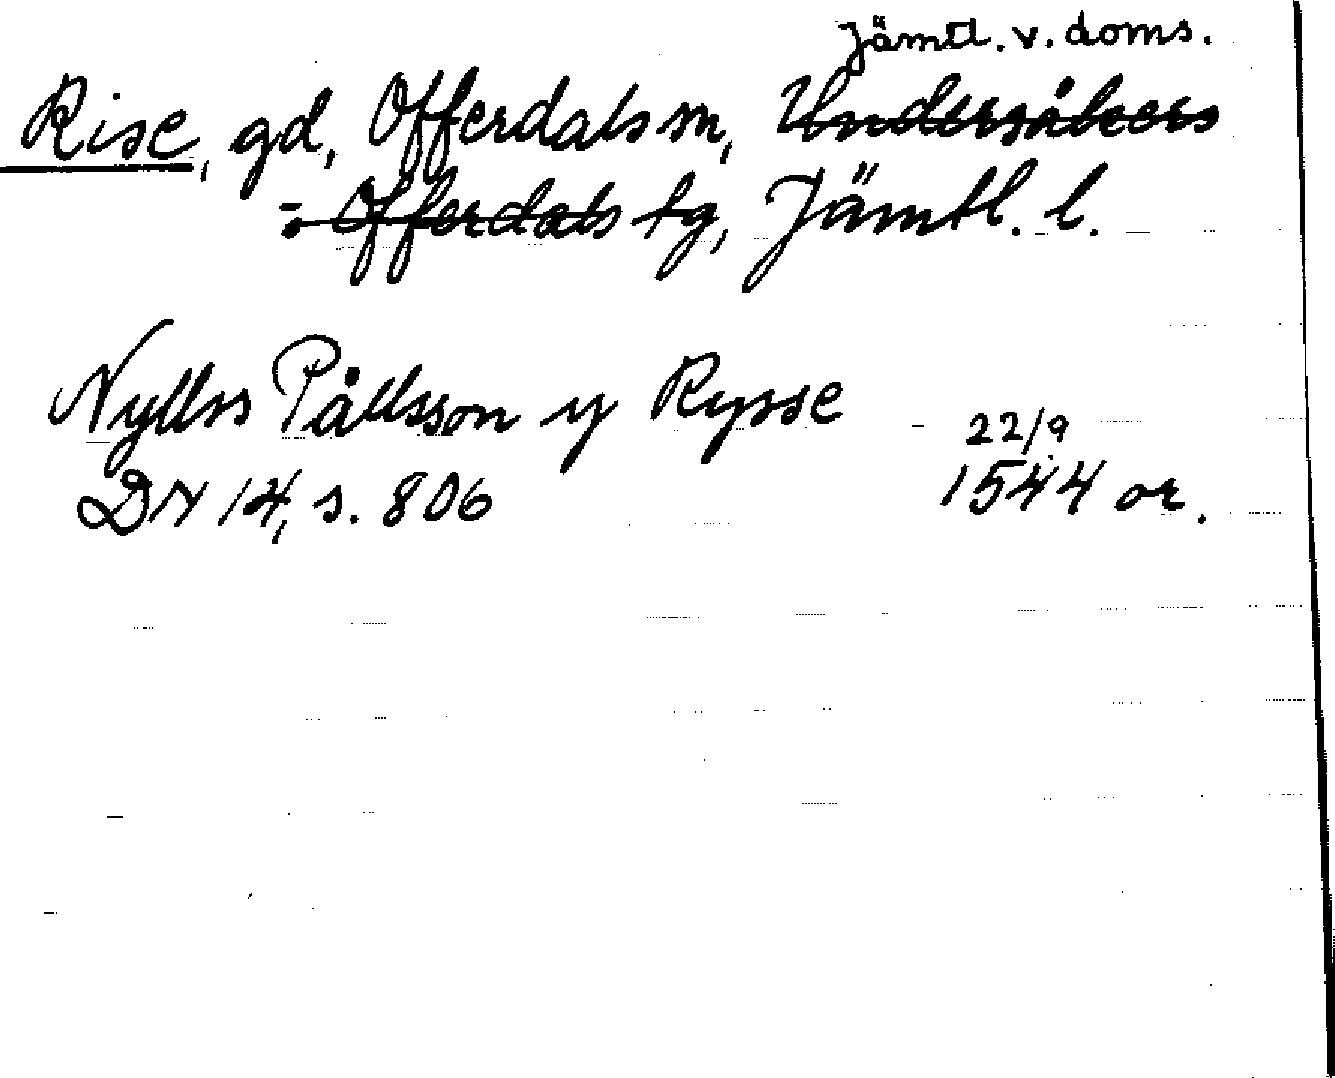 Jämtl. v. doms.
Rise, gd, Offerdals sn, Undersåkers
- o. Offerdals tg, Jämtl. l.
Nyllss Pållsson y Rysse 22/9
DN 14, s. 806 1544 or.